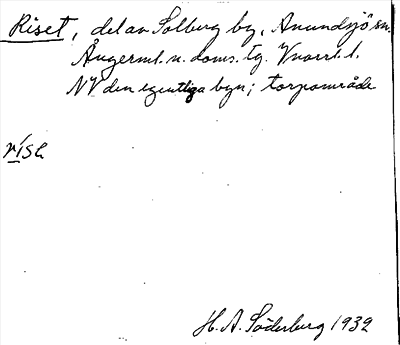 Riset, del av Solberg by, Anundsjö sn.
Ångerml. n. doms. tg. Vnorrl. l.
NV den egentliga byn; torpområde
H. A. Söderberg 1932